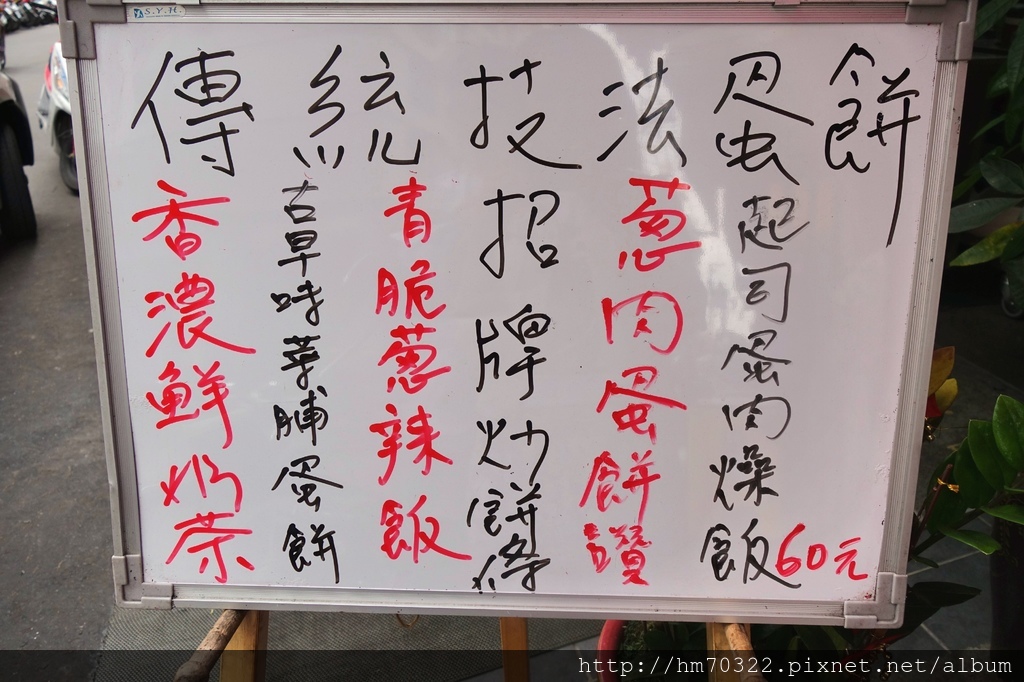 S.Y.H.
傳統技法蛋餅
香濃鮮奶茶
古早味菜脯蛋餅
青脆蔥辣飯
招牌炒餅條
蔥肉蛋餅讚
起司蛋肉燥飯60元
http://hm70322.pixnet.net/album